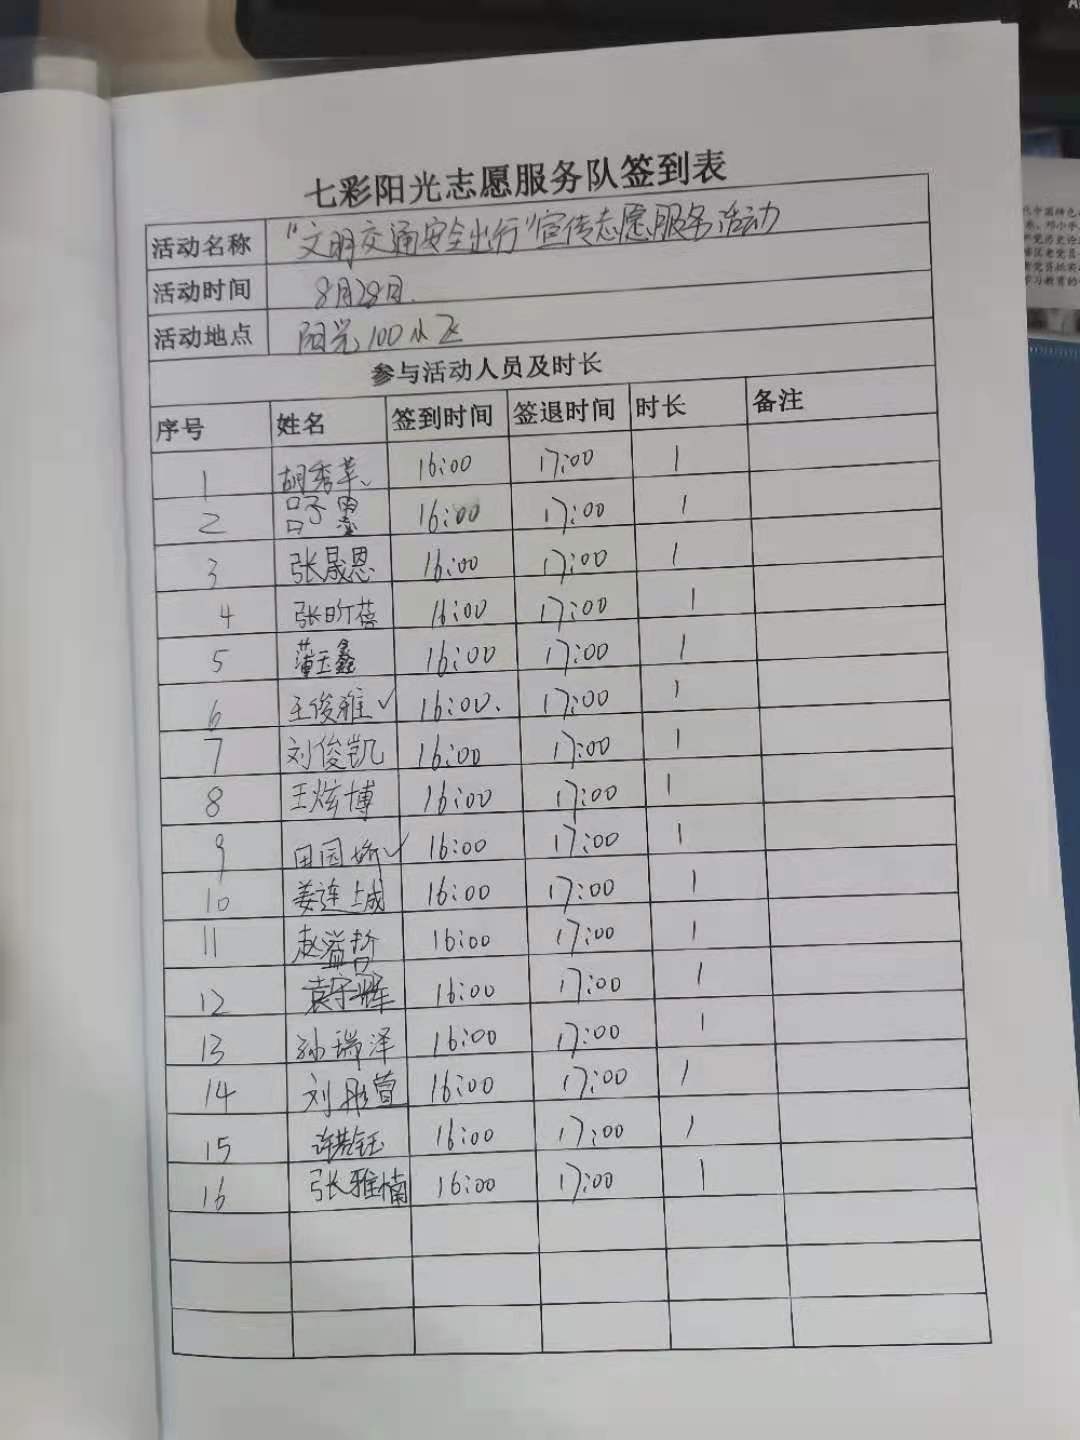 七彩阳光志愿服务队签到表
活动名称 "文明交通安全出行"宣传志愿服务活动
活动时间 8月28日.
活动地点 阳光100小区
参与活动人员及时长
序号 姓名 签到时间 签退时间 时长 备注
1 胡秀苹 16:00 17:00 1
2 16:00 17:00 1
3 张晟恩 16:00 17:00 1
4 张昕蓓 16:00 17:00 1
5 蒲玉鑫 16:00 17:00 1
6 王俊雅✓ 16:00. 17:00 1
7 刘俊凯 16:00 17:00 1
8 王炫博 16:00 17:00 1
9 田园娇✓ 16:00 17:00 1
10 姜连城 16:00 17:00 1
11 赵溢哲 16:00 17:00 1
12 袁宇辉 16:00 17:00 1
13 孙瑞泽 16:00 17:00 1
14 刘彤萱 16:00 17:00 1
15 钰 16:00 17:00 1
16 张雅楠 16:00 17:00 1